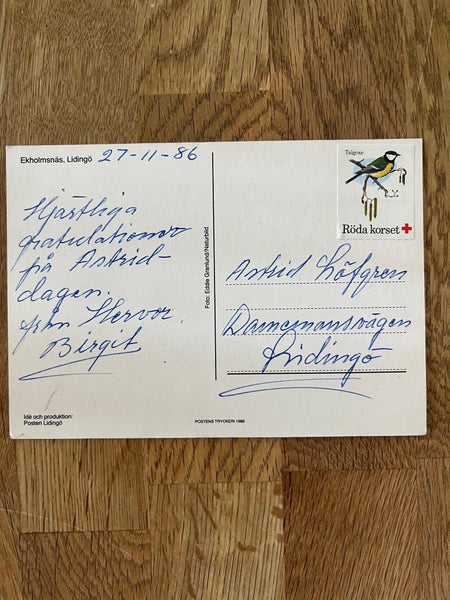 Ekholmsnäs, Lidingö 27-11-86
Hjärtliga
gratulationer
på Astrid-
dagen.
från Hervor.
Birgit
Idé och produktion:
Posten Lidingö
Foto: Eddie Granlund/Naturbild
POSTENS TRYCKERI 1986
Talgoxe
Röda korset
Astrid Löfgren
Lidingö